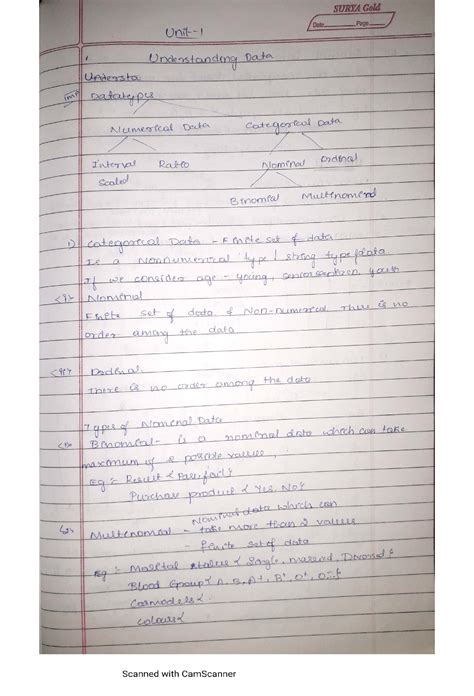 SURYA Gold
Date Page
Unit-1
Understanding Data
Understa
imp Datatypes
Numerical Data Categorical Data
Interval Ratio Nominal Ordinal
Scaled
Binomial Multinomial
1) Categorical Data - Finite set of data
Is a Nonnumerical type / string type data
If we consider age - young, senior citizen youth
<i> Nominal
Finite set of data & Non-numerical There is no
order among the data
<ii> Ordinal
There is no order among the data
Types of Nominal Data
<1> Binomial - is a nominal data which can take
maximum of 2 possible values,
Eg :- Result { Pass, fail }
Purchase product { Yes, No }
Nominal data which can
<2> Multinomial - take more than 2 values
- finite set of data
Eg :- Marital status { Single, married, Divorced }
Blood Group { A, B, A+, B+, O+, O- }
Carmodels {
colours {
Scanned with CamScanner